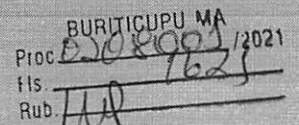 BURITICUPU MA
Proc. 0208001/2021
Fls. 1623
Rub.